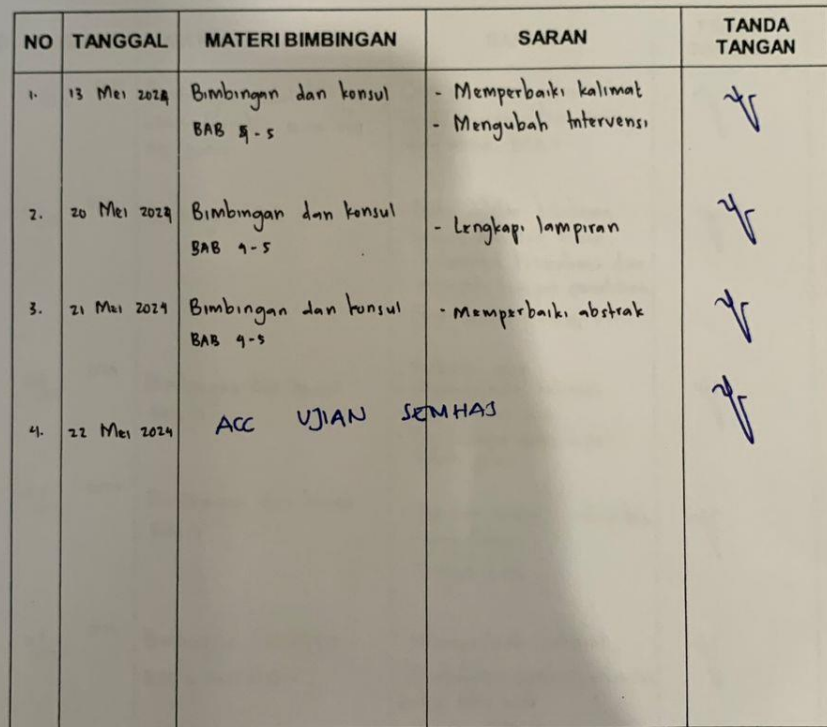 NO TANGGAL MATERI BIMBINGAN SARAN TANDA TANGAN
1. 13 Mei 2024 Bimbingan dan konsul - Memperbaiki kalimat
BAB 4-5 - Mengubah Intervensi
2. 20 Mei 2024 Bimbingan dan konsul - Lengkapi lampiran
BAB 4-5
3. 21 Mei 2024 Bimbingan dan konsul - Memperbaiki abstrak
BAB 4-5
4. 22 Mei 2024 ACC UJIAN SEMHAS